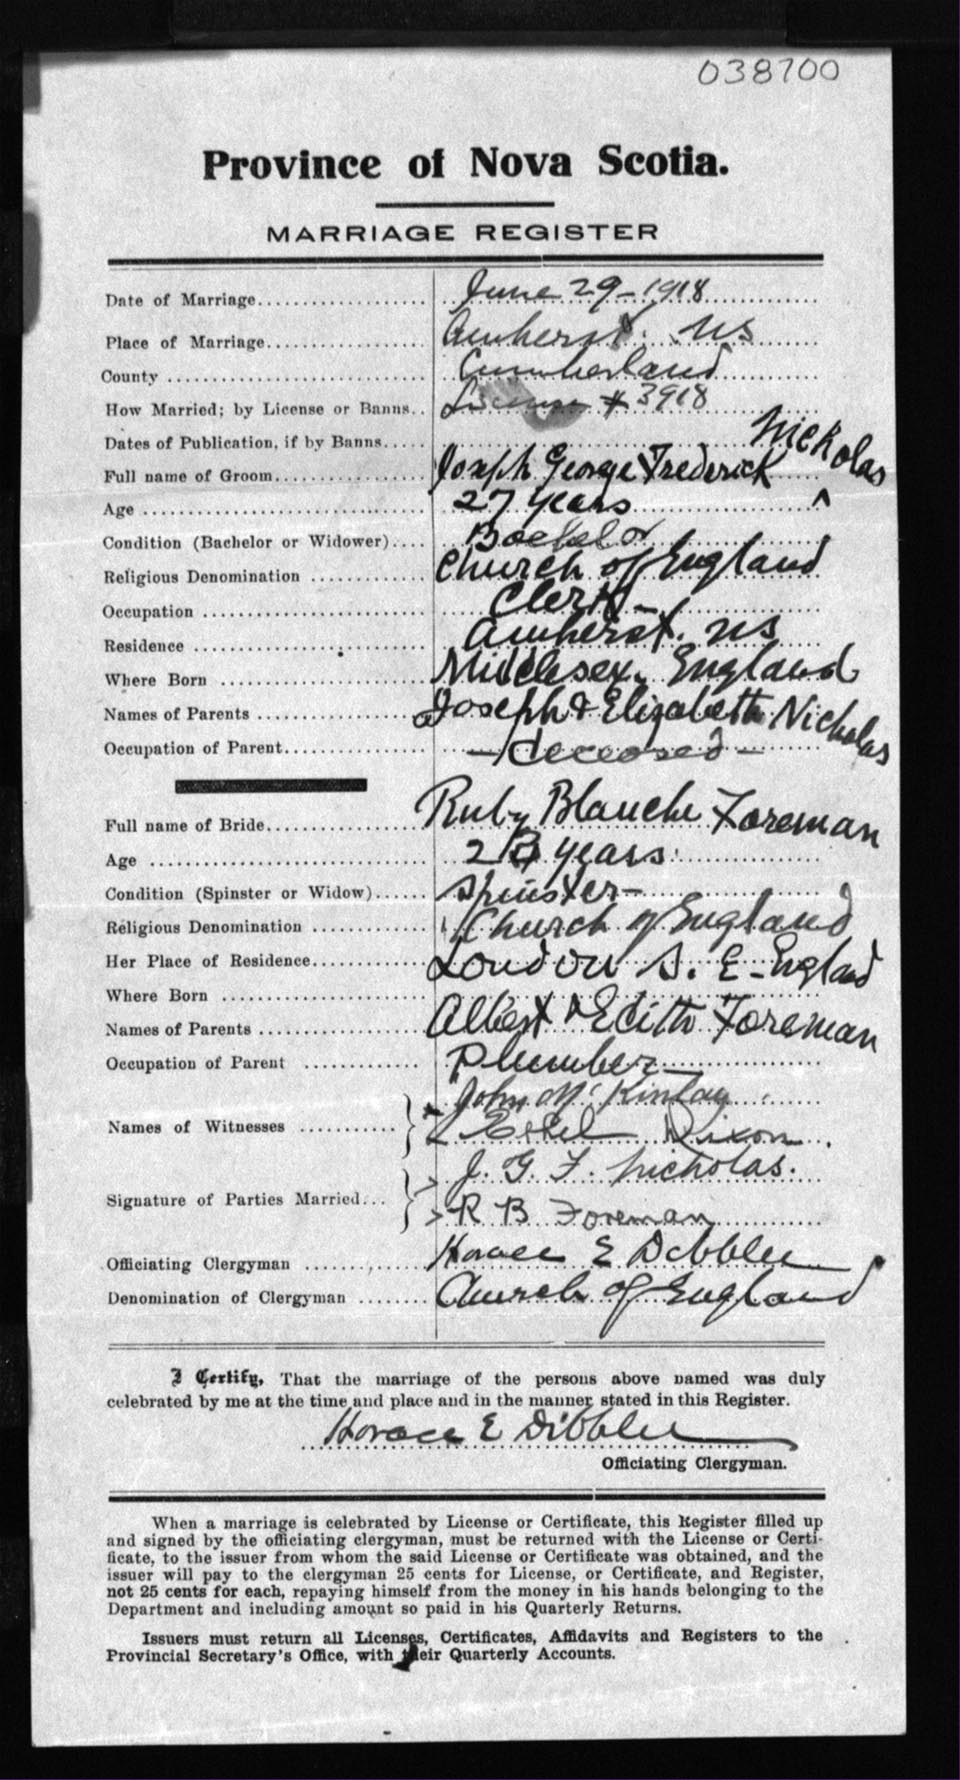 038700
Province of Nova Scotia.
MARRIAGE REGISTER
Date of Marriage June 29 - 1918
Place of Marriage Amherst. NS
County Cumberland
How Married; by License or Banns License # 3918
Dates of Publication, if by Banns
Full name of Groom Joseph George Frederick ^ Nicholas
Age 27 years
Condition (Bachelor or Widower) Bachelor
Religious Denomination Church of England
Occupation Clerk -
Residence Amherst. NS
Where Born Middlesex, England
Names of Parents Joseph & Elizabeth Nicholas
Occupation of Parent - deceased -
Full name of Bride Ruby Blanche Foreman
Age years
Condition (Spinster or Widow) Spinster -
Religious Denomination Church of England
Her Place of Residence London S. E - England
Where Born
Names of Parents Albert & Edith Foreman
Occupation of Parent Plumber
Names of Witnesses John McKinlay
Ethel Dixon.
Signature of Parties Married J. G. F. Nicholas.
R B Foreman
Officiating Clergyman Horace E Dibblee
Denomination of Clergyman Church of England
I Certify, That the marriage of the persons above named was duly
celebrated by me at the time and place and in the manner stated in this Register.
Horace E Dibblee
Officiating Clergyman.
When a marriage is celebrated by License or Certificate, this Register filled up
and signed by the officiating clergyman, must be returned with the License or Certi-
ficate, to the issuer from whom the said License or Certificate was obtained, and the
issuer will pay to the clergyman 25 cents for License, or Certificate, and Register,
not 25 cents for each, repaying himself from the money in his hands belonging to the
Department and including amount so paid in his Quarterly Returns.
Issuers must return all Licenses, Certificates, Affidavits and Registers to the
Provincial Secretary's Office, with their Quarterly Accounts.